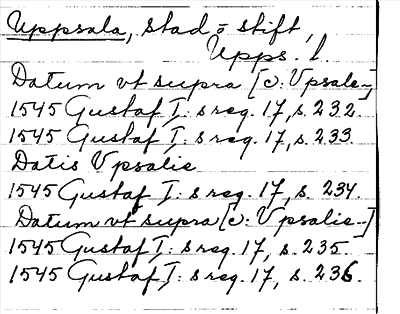 Uppsala, stad o stift,
Upps. l.
Datum vt supra [ɔ: Vpsale-]
1545 Gustaf I: s reg. 17, s. 232.
1545 Gustaf I: s reg. 17, s. 233.
Datis Vpsalie
1545 Gustaf I: s reg. 17, s. 234.
Datum vt supra [ɔ: Vpsalie-]
1545 Gustaf I: s reg. 17, s. 235.
1545 Gustaf I: s reg. 17, s. 236.